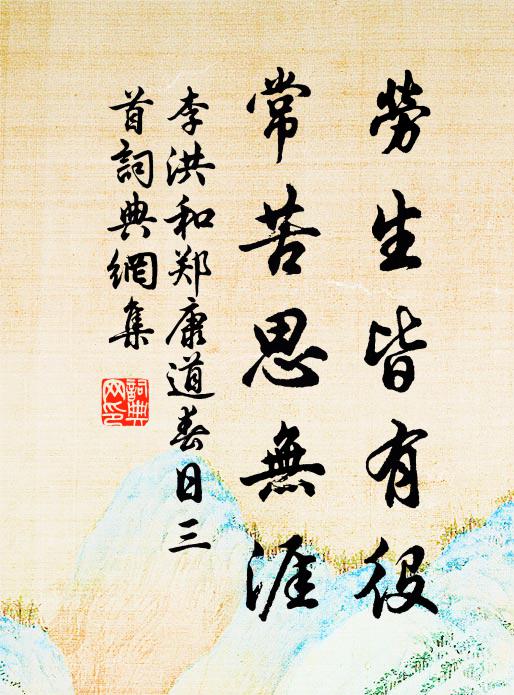 勞生皆有役
常苦思無涯
李洪和郑康道春日三
首詞典網集
詞典
网印